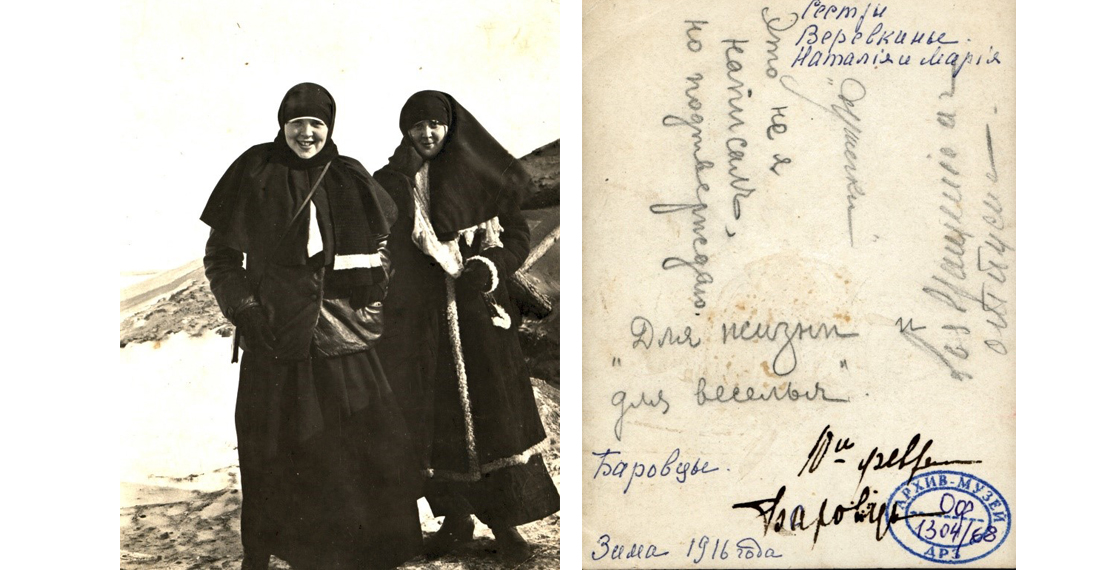 Сестры
Веревкины.
Наталія и Марія
Это не я
написалъ,
но подтверждаю.
"Душечки"
"Для жизни и
для веселья"
Баровцы.
Зима 1916 года
Баровцы
АРХИВ-МУЗЕЙ
ОФ
1304/68
ДРЗ